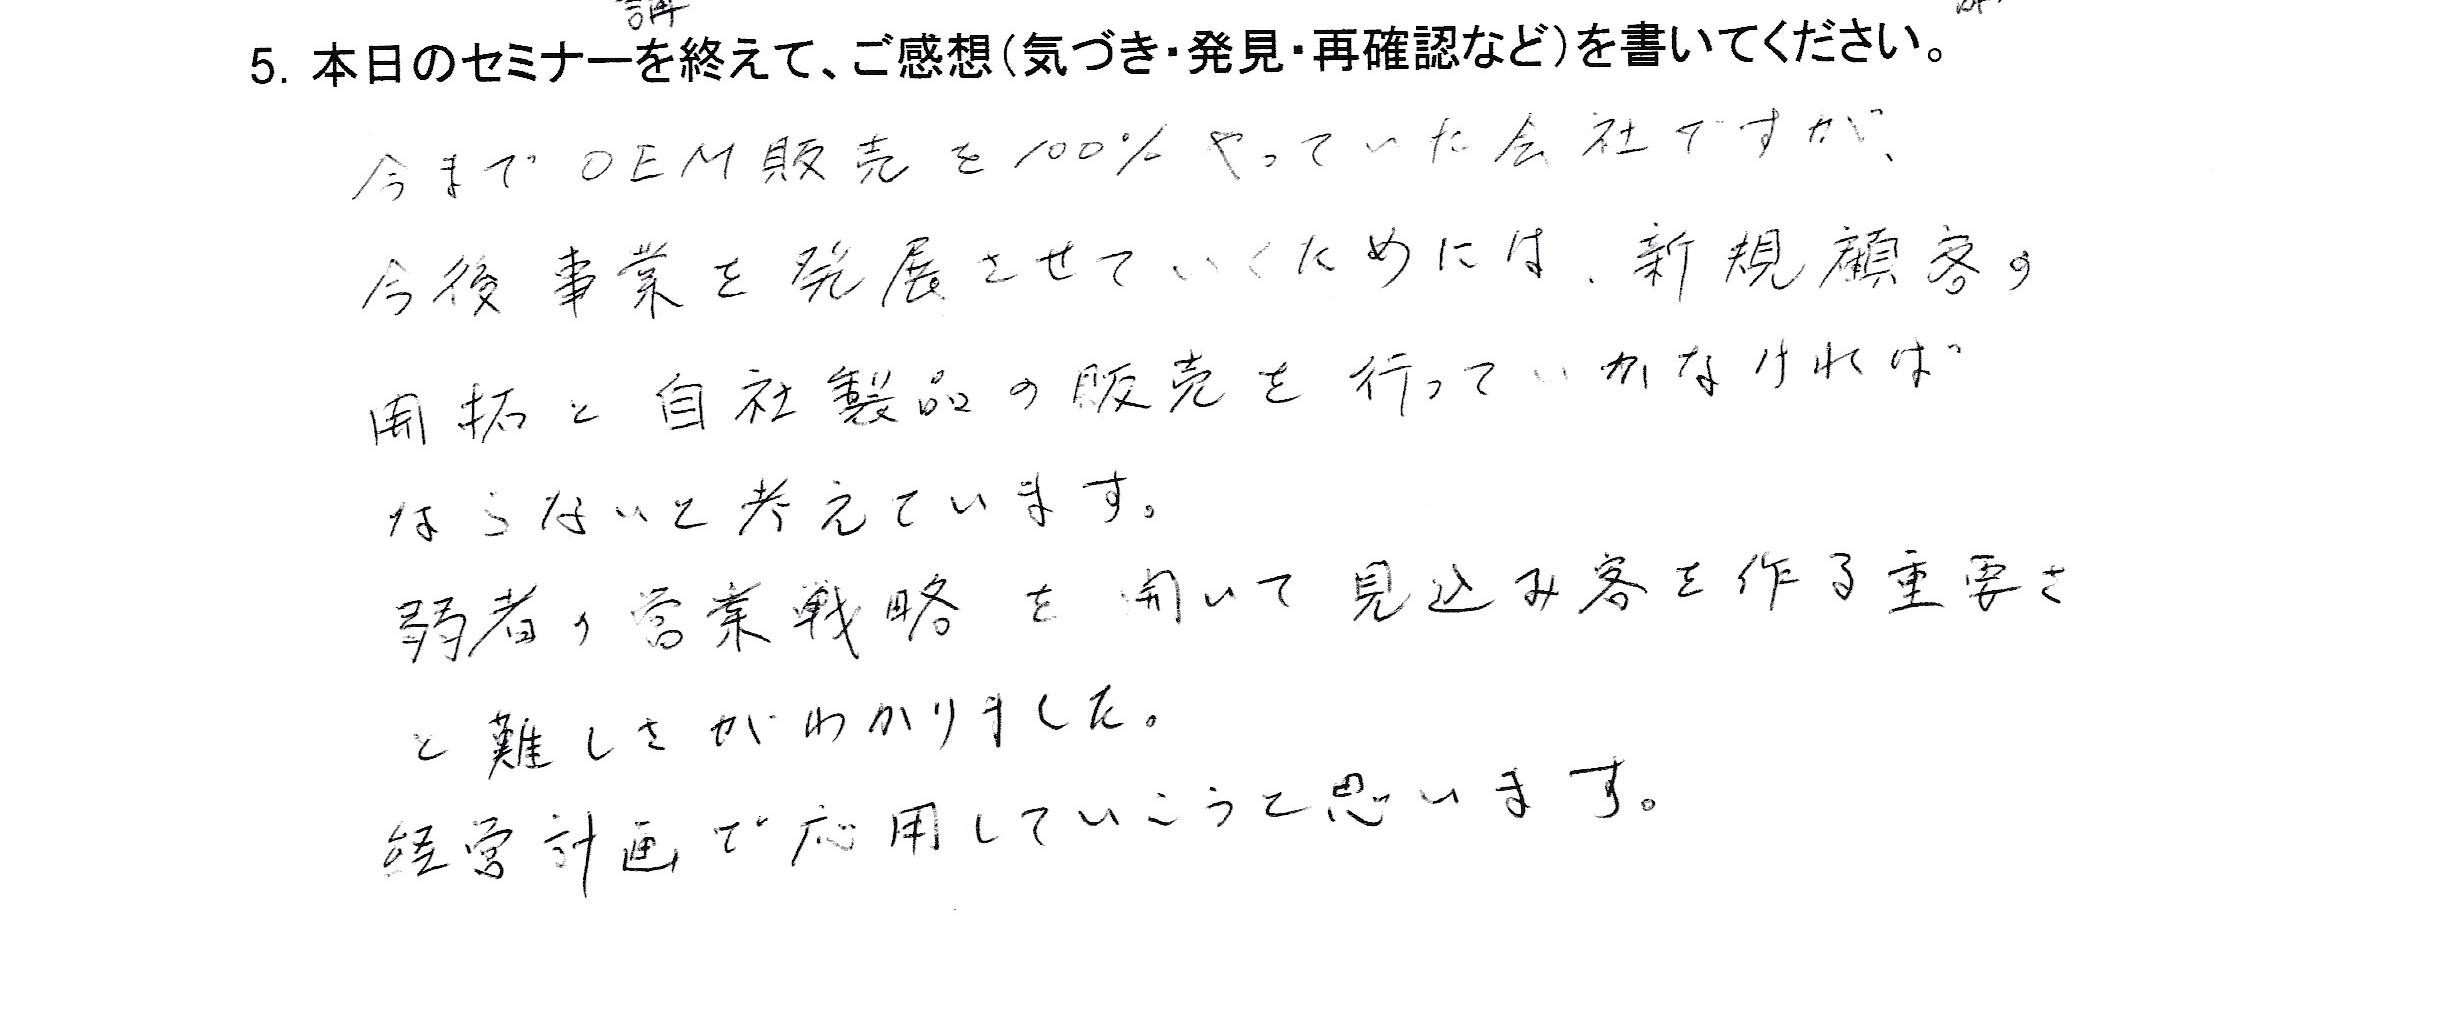 5. 本日のセミナーを終えて、ご感想（気づき・発見・再確認など）を書いてください。
今までOEM販売を100%やっていた会社ですが、
今後事業を発展させていくためには、新規顧客の
開拓と自社製品の販売を行っていかなければ
ならないと考えています。
弱者の営業戦略を聞いて見込み客を作る重要さ
と難しさがわかりました。
経営計画で応用していこうと思います。